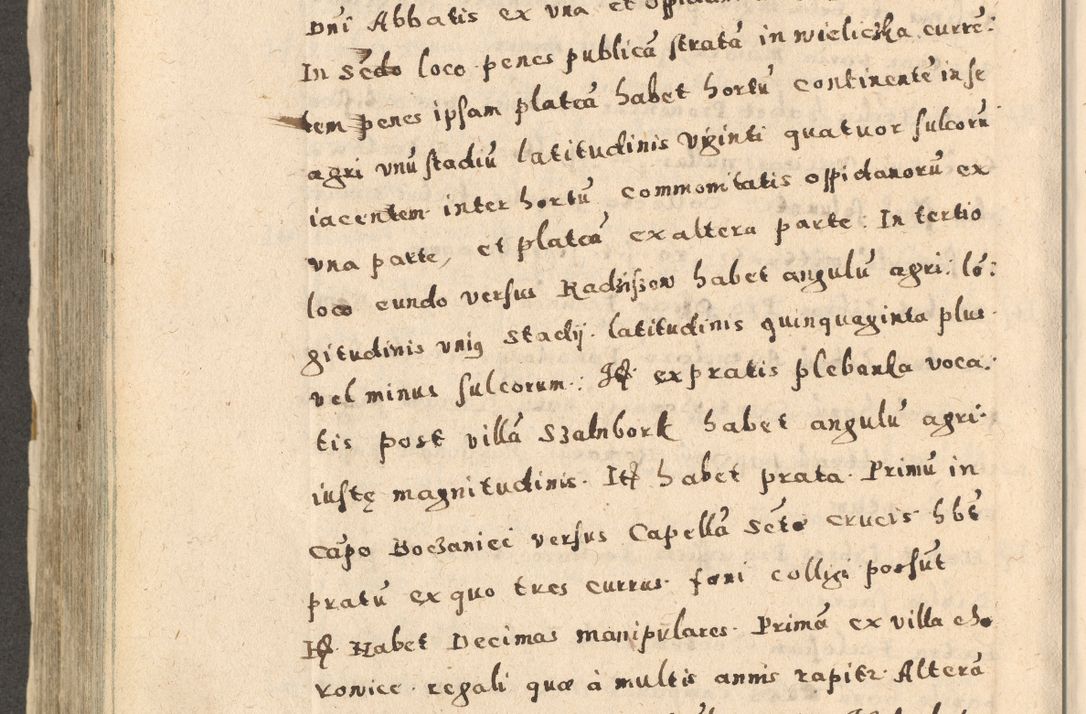 Dnī Abbatis ex vna et
In Scdo loco penes publicā stratā in wieliczka curre:
tem penes ipsam plateā habet hortū continentē in se
agri vnū stadiū latitudinis viginti quatuor sulcorū
iacentem inter hortū commonitatis oppidanorū ex
vna parte, et plateā ex altera parte. In tertio
loco eundo versus Radzissow habet angulū agri: lō:
gitudinis vniꝰ stadij. latitudinis quinquaginta plus
vel minus sulcorum: Itē ex pratis plebanka voca:
tis post villā Szalnbork habet angulū agri.
iustę magnitudinis. Itē habet prata. Primū in
Cāpo Boczaniec versus Capellā Sctę crucis hbt
pratū ex quo tres currus foni colligi possūt
Itē Habet Decimas manipulares. Primā ex villa cho
ronice regali quæ à multis annis rapitr. Alterā